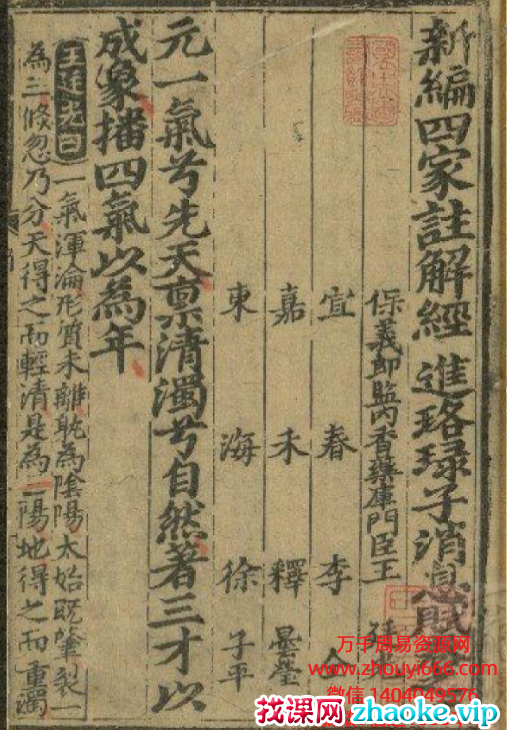 新編四家註解經進珞琭子消息賦
保義郎監內香藥庫門臣王
宜春李
嘉禾釋曇瑩
東海徐子平
元一氣兮先天禀清濁兮自然著三才以
成象播四氣以為年
王廷光曰一氣渾淪形質未離孰為陰陽太始既肇裂一
為三倐忽乃分天得之而輕清是為一陽地得之而重濁
万千周易资源网
www.zhouyi666.com
微信 1404049576
找课网zhaoke.vip